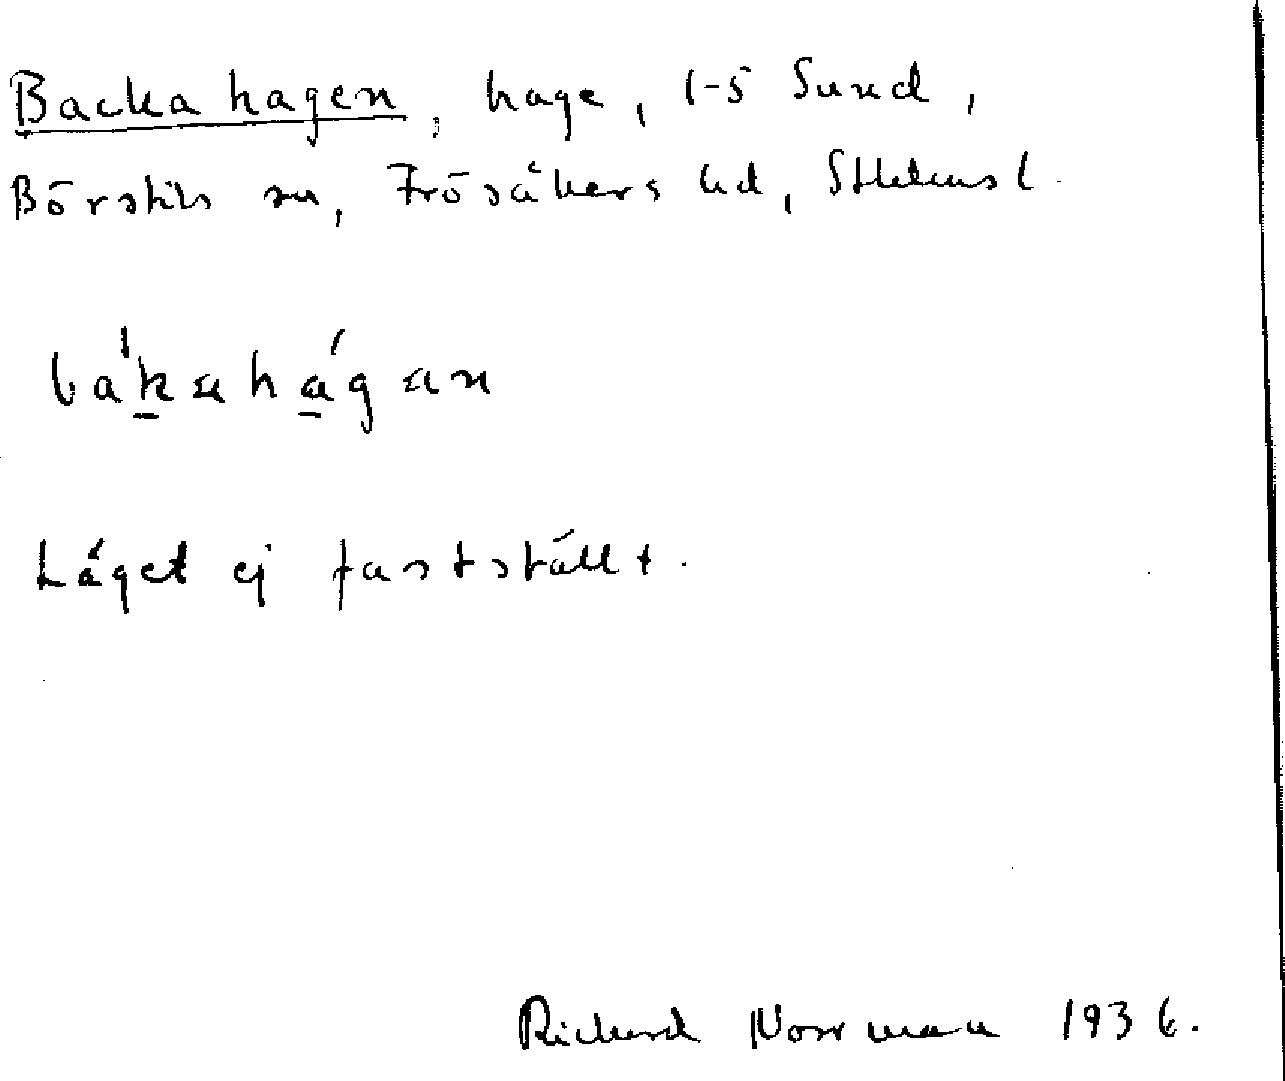 Backahagen, hage, 1-5 Sund,
Börstils sn, Frösåkers hd, Sthlms l.
bak̲aha̲gan
Läget ej fastställt.
Richard Norrman 1936.